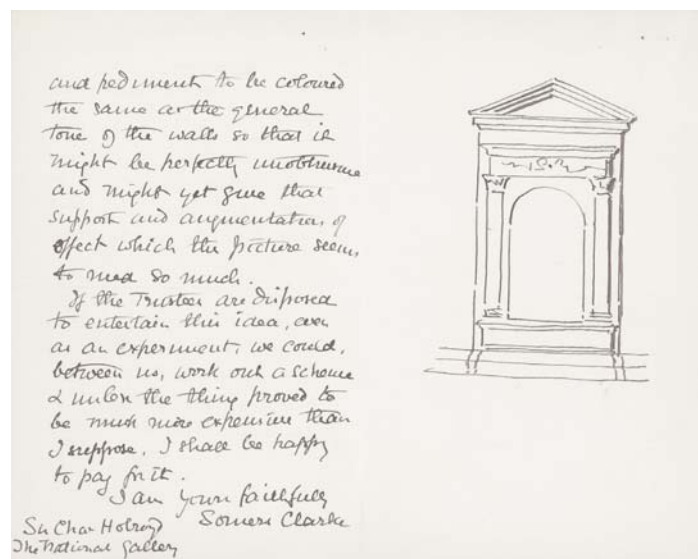 and pediment to be coloured
the same as the general
tone of the walls so that it
might be perfectly unobtrusive
and might yet give that
support and augmentation of
effect which the picture seems
to need so much.
If the Trustees are disposed
to entertain this idea, even
as an experiment, we could,
between us, work out a scheme
& unless the thing proved to
be much more expensive than
I suppose, I shall be happy
to pay for it.
I am yours faithfully
Somers Clarke
Sir Chas Holroyd
The National Gallery